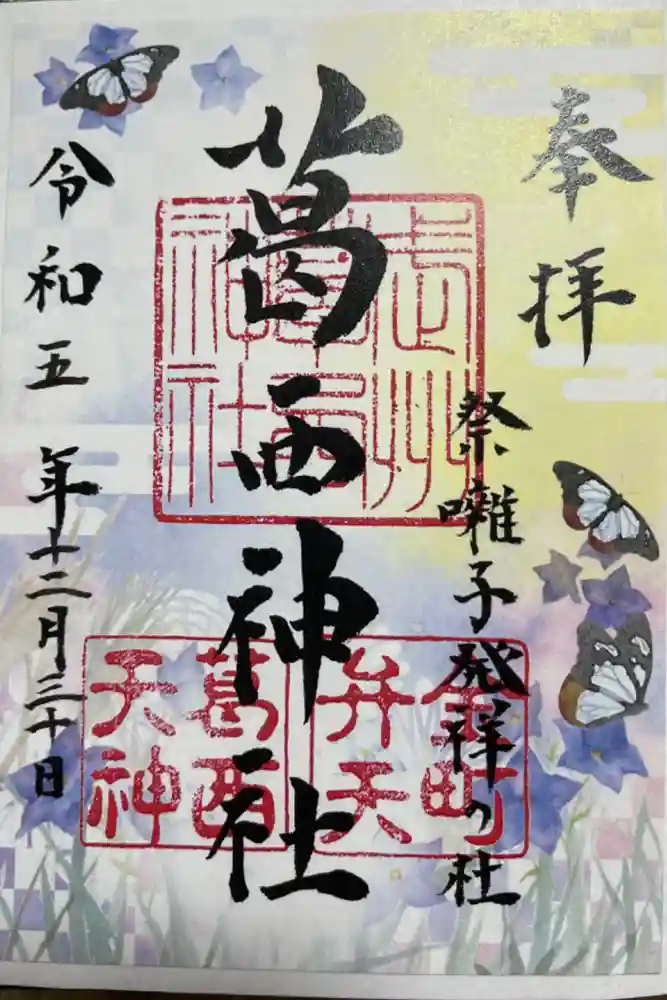 奉拝
祭囃子発祥の社
葛西神社
令和五年十二月三十日
武州
葛西
神社
金町
弁天
葛西
天神